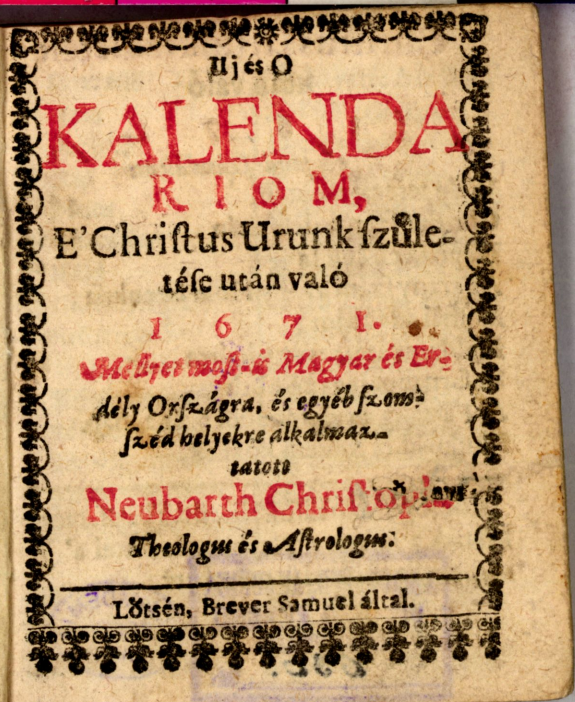 Uj és O
KALENDA
RIOM,
E'Chriſtus Urunk ſzuͤle-
téſe után való
1 6 7 1.
Mellyet moſt-is Magyar és Er-
dély Orſzágra, és egyéb ſzom-
ſzéd helyekre alkalmaz-
tatott
Neubarth Chriſtoph
Theologus és Aſtrologus:
Loͤtsén, Brever Samuel által.